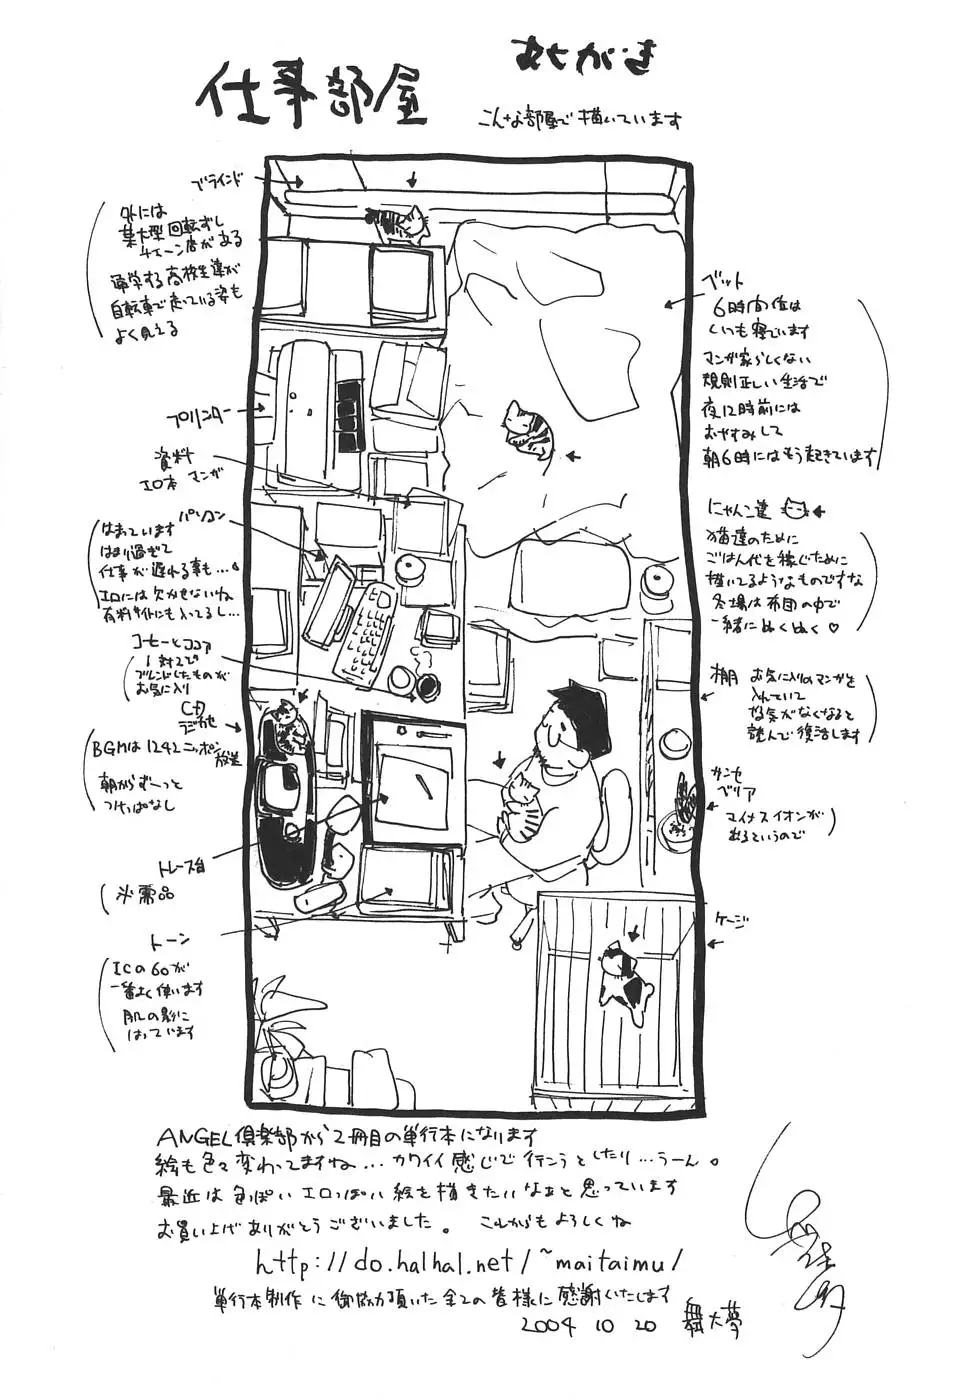 あとがき
仕事部屋
こんな部屋で描いています
ブラインド
外には
集大型回転ずし
チェーン店がある
通学する高校生達が
自転車で走っている姿も
よく見える
プリンター
資料
エロ本 マンガ
パソコン
はまっています
はまり過ぎて
仕事が遅れる事も…
エロには欠かせないね
有料サイトにも入ってるし…
コーヒーとココア
1対2で
ブレンドしたものが
お気に入り
CD
ラジカセ
BGMは1242ニッポン
放送
朝からずーっと
つけっぱなし
トレース台
必需品
トーン
ICの60が
一番よく使います
肌の影に
はっています
ベット
6時間位は
いつも寝ています
マンガ家らしくない
規則正しい生活で
夜12時前には
おやすみして
朝6時にはもう起きています
にゃんこ達
猫達のために
ごはん代を稼ぐために
描いてるようなものですな
冬場は布団の中で
一緒にぬくぬく♡
棚 お気に入りのマンガを
入れていて
やる気がなくなると
読んで復活します
サンセ
ベリア
マイナスイオンが
出るというので
ケージ
ANGEL倶楽部から2冊目の単行本になります
絵も色々変わってますね…カワイイ感じで行こうとしたり…うーん。
最近は色っぽいエロっぽい絵を描きたいなぁと思っています
お買い上げありがとうございました。 これからもよろしくね
http://do.halhal.net/~maitaimu/
単行本制作に御協力頂いた全ての皆様に感謝いたします
2004 10 20 舞大夢